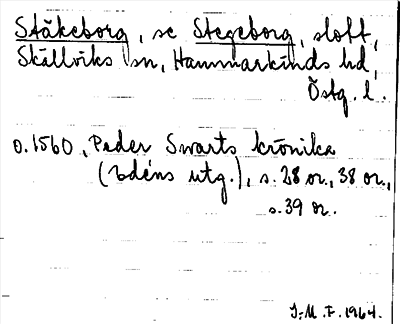 Ståkeborg, se Stegeborg, slott,
Skällviks sn, Hammarkinds hd,
Östg. l.
o. 1560, Peder Swarts krönika
(Edéns utg.), s. 28 or., 38 or.,
s. 39 or.
J.M.F. 1964.